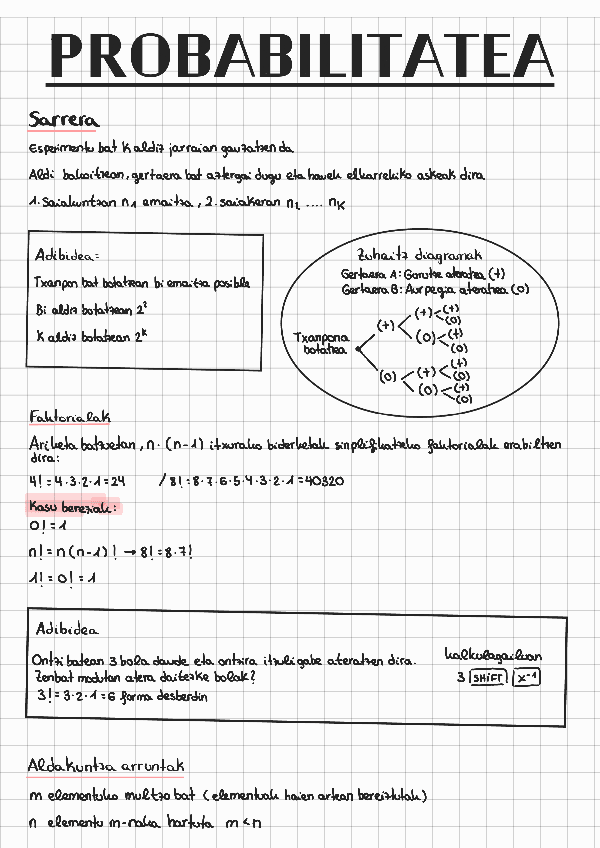 PROBABILITATEA
Sarrera
Esperimentu bat K aldiz jarraian gauzatzen da
Aldi bakoitzean, gertaera bat aztergai dugu eta hauek elkarrekiko askeak dira
1. Saiakuntzan n1 emaitza, 2. saiakeran n2 .... nK
Adibidea:
Txanpon bat botatzean bi emaitza posible
Bi aldiz botatzean 2²
K aldiz botatzean 2ᵏ
Zuhaitz diagramak
Gertaera A: Gurutze ateratzea (+)
Gertaera B: Aurpegia ateratzea (o)
Txanpona
botatzea
(+) (+) (+)
(o)
(o) (+)
(o)
(o) (+) (+)
(o)
(o) (+)
(o)
Faktorialak
Ariketa batzuetan, n·(n-1) itxurako biderketak sinplifikatzeko faktorialak erabiltzen
dira:
4! = 4·3·2·1 = 24 / 8! = 8·7·6·5·4·3·2·1 = 40320
Kasu bereziak:
0! = 1
n! = n(n-1)! → 8! = 8·7!
1! = 0! = 1
Adibidea
Ontzi batean 3 bola daude eta ontzira itzuli gabe ateratzen dira.
Zenbat modutan atera daitezke bolak?
3! = 3·2·1 = 6 forma desberdin
kalkulagailuan
3 SHIFT x⁻¹
Aldakuntza arruntak
m elementuko multzo bat (elementuak haien artean bereiztutak)
n elementu m-naka hartuta m<n